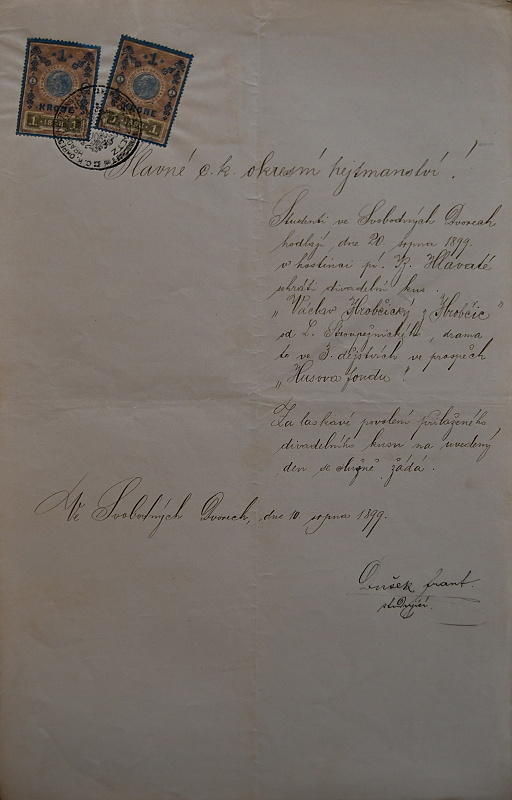 1 1
KRONE KRONE
1 1898 1 1898 1
Slavné c. k. okresní hejtmanství!
Studenti ve Svobodných Dvorech
hodlají dne 20. srpna 1899.
v hostinci pí. K. Hlavaté
sehráti divadelní kus.
„Václav Hrobčický z Hrobčic"
od L. Stroupežnického, drama
to ve 3. dějstvích ve prospěch
„Husova fondu".
Za laskavé povolení přiloženého
divadelního kusu na uvedený
den se slušně žádá.
Ve Svobodných Dvorech, dne 10. srpna 1899.
Dušek Frant.
studující.